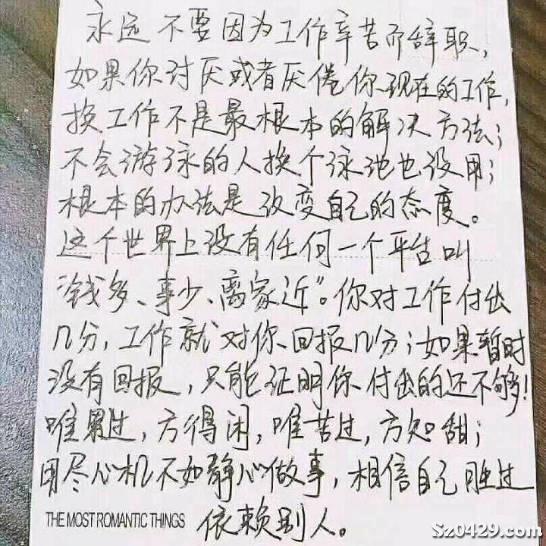 永远不要因为工作辛苦而辞职，
如果你讨厌或者厌倦你现在的工作，
换工作不是最根本的解决方法；
不会游泳的人换个泳池也没用；
根本的办法是改变自己的态度。
这个世界上没有任何一个平台叫
“钱多、事少、离家近”。你对工作付出
几分，工作就对你回报几分；如果暂时
没有回报，只能证明你付出的还不够！
唯累过，方得闲，唯苦过，方知甜；
用尽心机不如静心做事，相信自己胜过
依赖别人。
THE MOST ROMANTIC THINGS
Sz0429.com